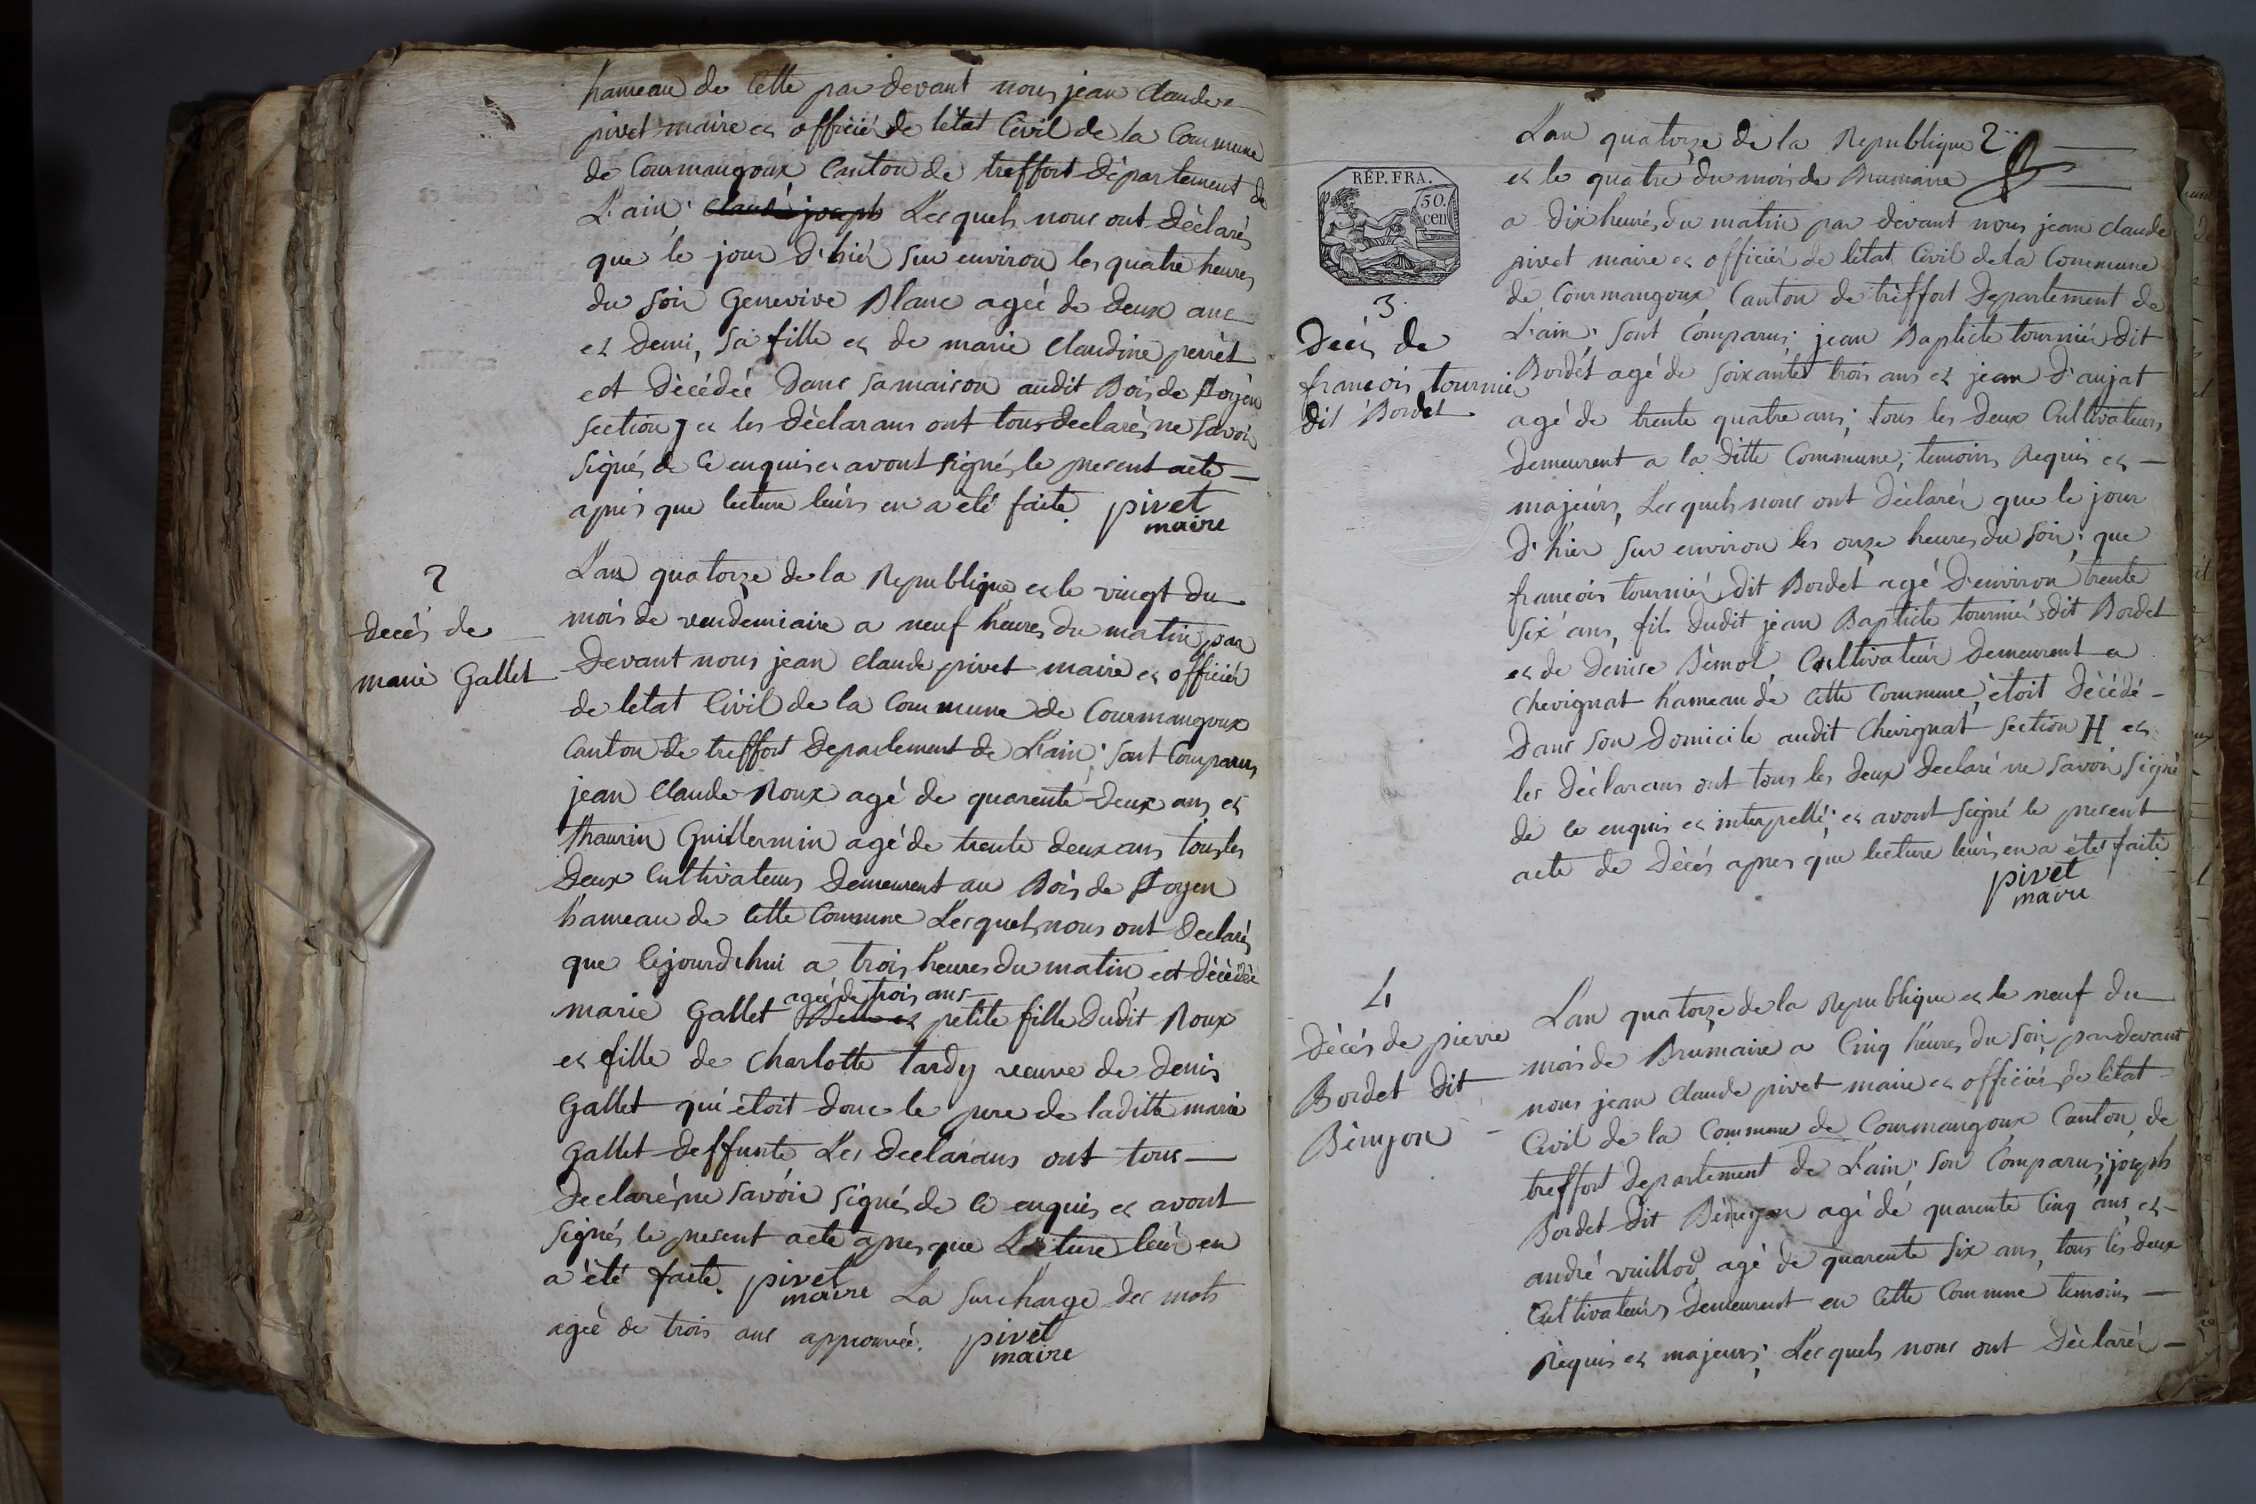 hameau de Cette par devant nous jean Claude
pivet maire et officié de létat Civil de la Commune
de Courmangoux Canton de treffort département de
L'ain; Claude joseph Lesquels nous ont déclarés
que le jour d'hiér sur environ les quatre heures
du soir Genevive Blanc agée de deux ans
et demi, sa fille et de marie Claudine perrét
est décédée dans sa maison audit Bois de
section J et les déclarans ont tous declarés ne savoir
signés de ce enquis et avont signés le present acte
aprés que lecture leurs en a été faite. pivet
maire
2
decés de
marie Gallet
L'an quatorze de la Republique et le vingt du
mois de vendemiaire a neuf heures du matin par
Devant nous jean Claude pivet maire et officiér
de letat Civil de la Commune de Courmangoux
Canton de treffort Departement de L'ain; sont Comparus
jean Claude Roux agé de quarente deux ans et
thaurin Guillermin agé de trente deux ans tous les
deux Cultivateurs Demeurent au Bois de
hameau de Cette Commune Lesquels nous ont declarés
que Cejourdhui a trois heures du matin est décédée
agée de trois ans
marie Gallet petite fille dudit Roux
et fille de Charlotte tardy veuve de denis
Gallet qui étoit donc le pere de laditte marie
Gallet deffunte Les declarans ont tous
declarés ne savoir signés de ce enquis et avont
signés le present acte apres que Lecture leur en
a été faite. pivet
maire La surcharge des mots
agée de trois ans approuvée. pivet
maire
RÉP. FRA.
50.
cen
3.
Decés de
francois tournié
dit Bordet
L'an quatorze de la Republique
et le quatre du mois de Brumaire
a dix heures du matin par devant nous jean Claude
pivet maire et officiér de létat Civil de la Commune
de Courmangoux, Canton de tréffort Departement de
L'ain; sont Comparus; jean Baptiste tourniér dit
Bordét agé de soixante trois ans et jean D'aujat
agé de trente quatre ans; tous les deux Cultivateurs
demeurent a la ditte Commune, temoins Requis et
majeurs, Lesquels nous ont déclarér que le jour
d'hier sur environ les onze heures du soir; que
francois tourniér dit Bordét agé d'environ trente
six ans, fils dudit jean Baptiste tourniér dit Bordet
et de Dénise Bémol Cultivateur Demeurent a
Chevignat hameau de Cette Commune, étoit décédé
dans son domicile audit Chevignat section H et
les déclarans ont tous les deux declaré ne savoir signé
de ce enquis et interpellé; et avont signé le present
acte de Décés apres que lecture leurs en a été faite
pivet
maire
4
Décés de pierre
Bordet dit
Bényon
L'an quatorze de la Republique et le neuf du
mois de Brumaire a Cinq heures du soir par devant
nous jean Claude pivet maire et officiér de létat
Civil de la Commune de Courmangoux Canton de
treffort Departement de L'ain; son Comparus; joseph
Bordet dit Bényon agé de quarente Cinq ans et
andré vuillod agé de quarente six ans, tous les deux
Cultivateurs Demeurent en Cette Commune temoins
Requis et majeurs; Lesquels nous ont Déclarér